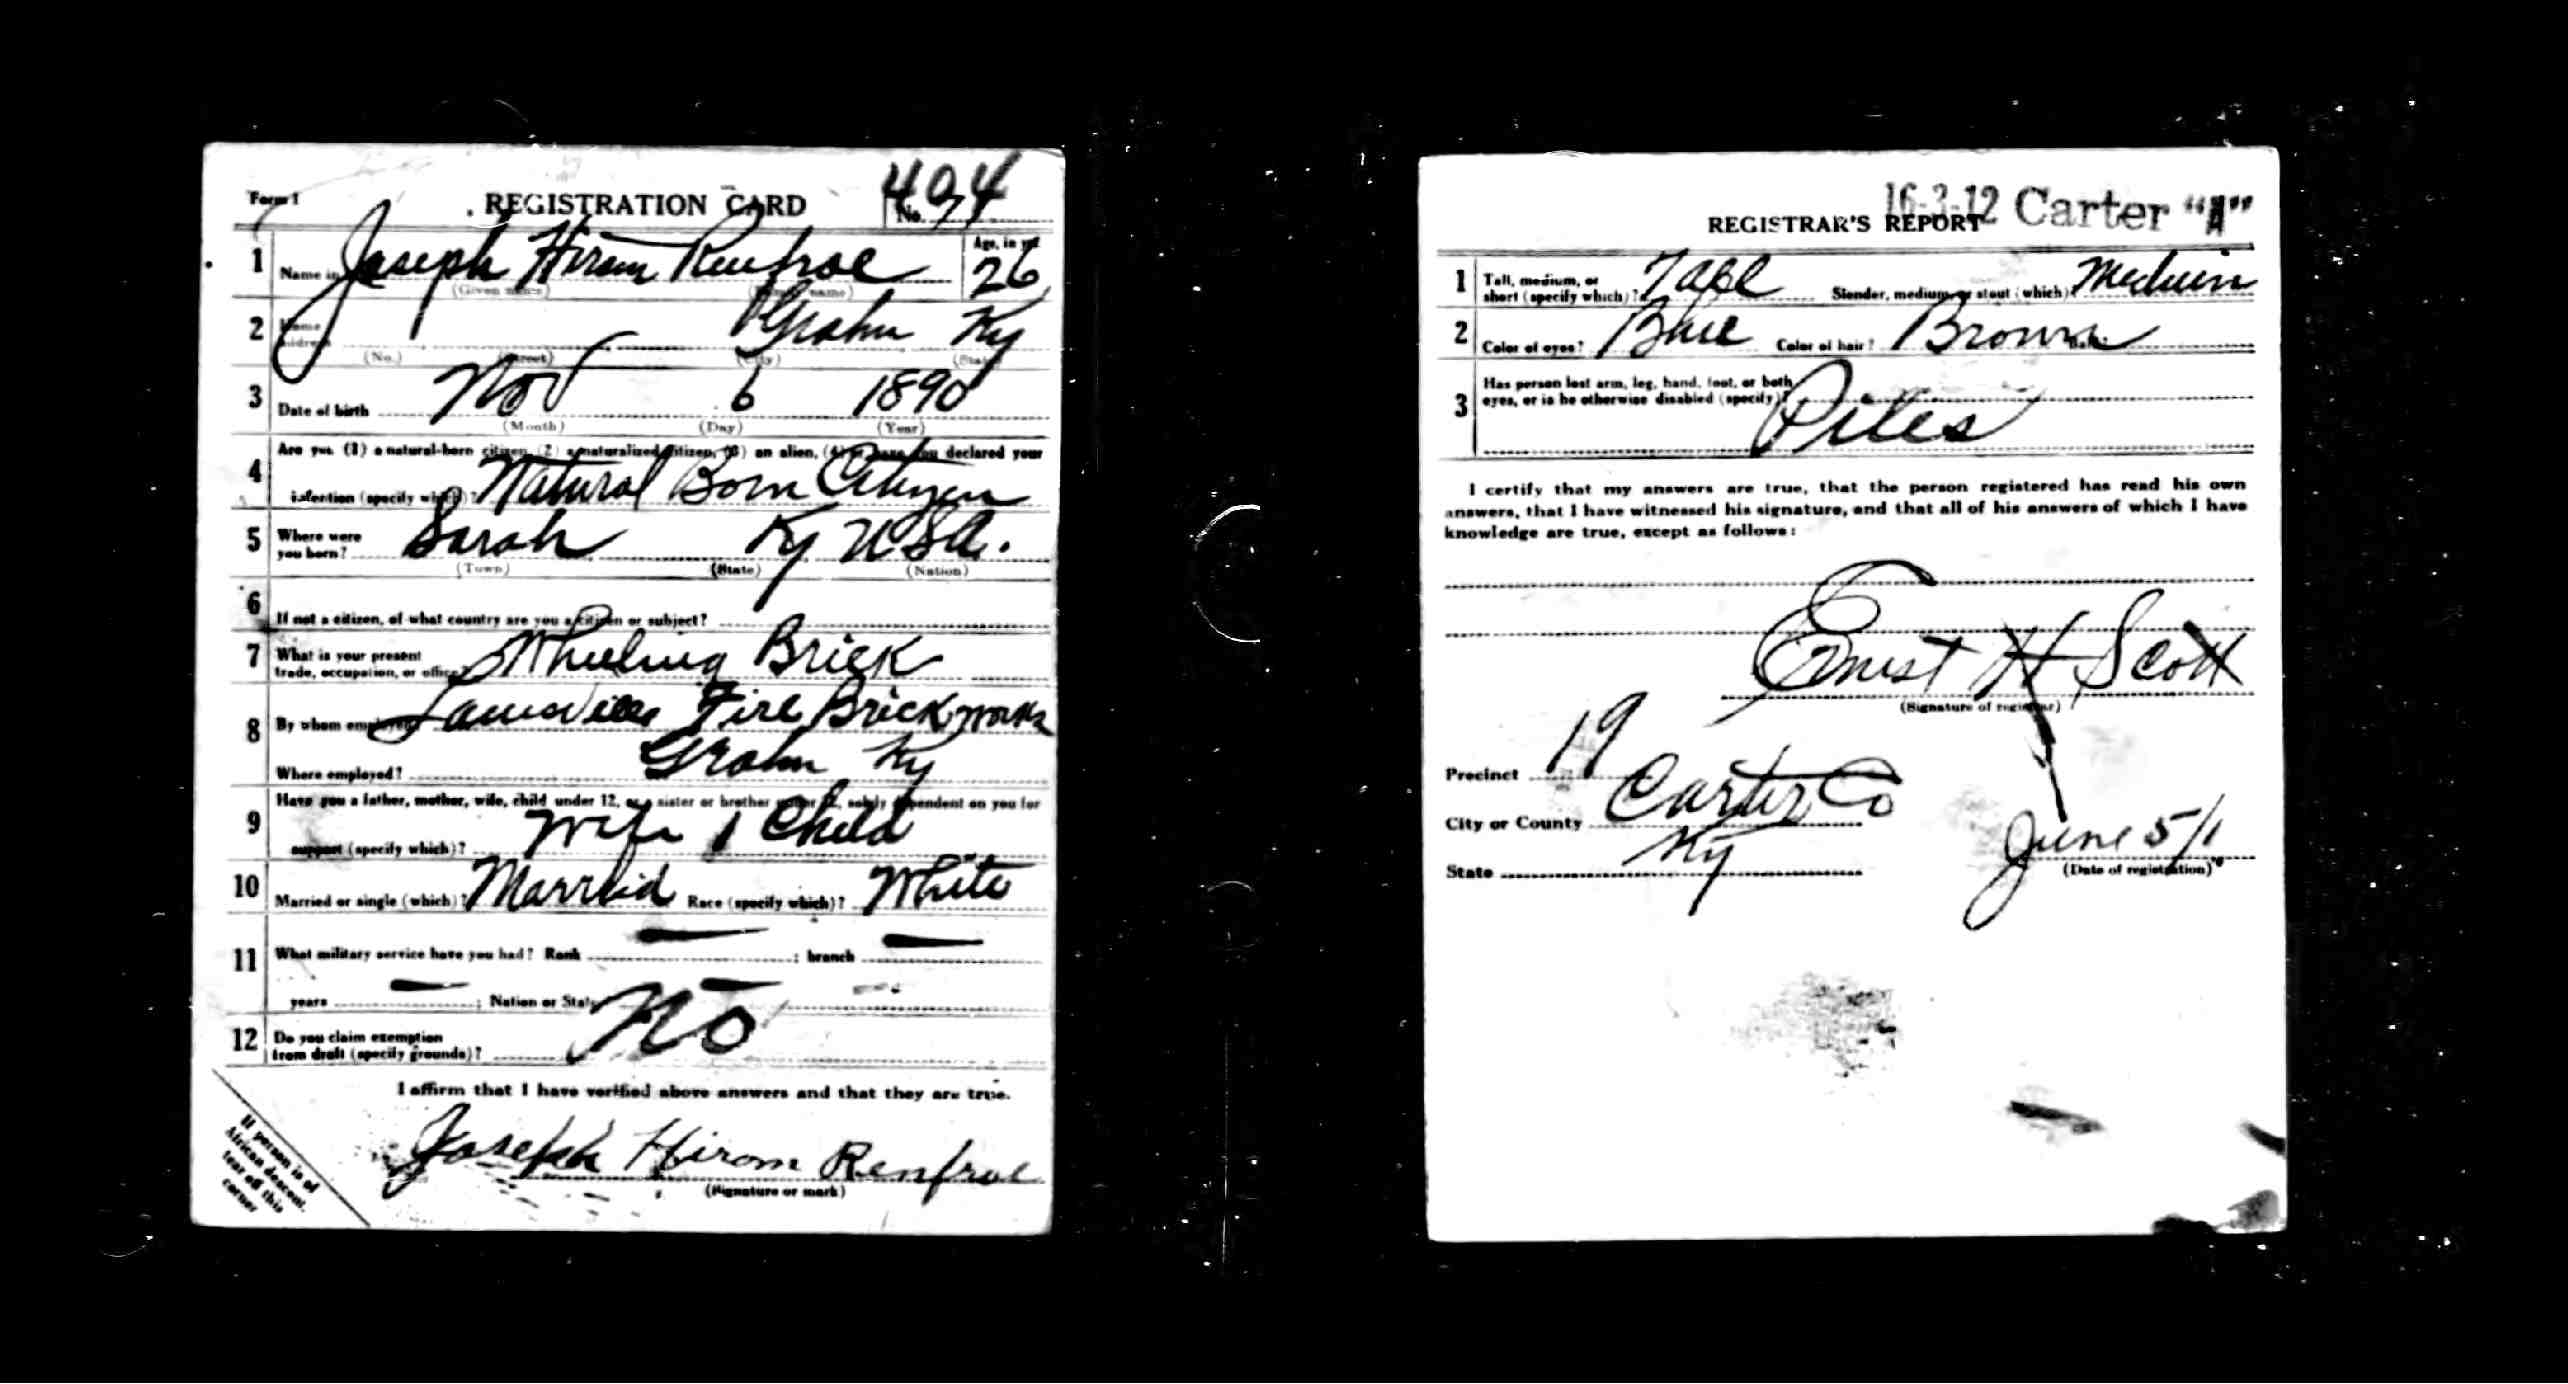 Form 1
REGISTRATION CARD
404
No. 74
1 Name in Joseph Hirom Renfroe
(Given name) (Family name)
Age, in yrs
26
2 Home Address Grahn Ky
(No.) (Street) (City) (State)
3 Date of birth Nov 6 1890
(Month) (Day) (Year)
4 Are you (1) a natural-born citizen, (2) a naturalized citizen, (3) an alien, (4) or have you declared your
intention (specify which)? Natural Born Citizen
5 Where were you born? Sarah Ky USA.
(Town) (State) (Nation)
6 If not a citizen, of what country are you a citizen or subject?
7 What is your present trade, occupation, or office? Wheeling Brick
8 By whom employed? Louisville Fire Brick works
Where employed? Grahn Ky
9 Have you a father, mother, wife, child under 12, or a sister or brother under 12, solely dependent on you for
support (specify which)? Wife 1 Child
10 Married or single (which)? Marreid Race (specify which)? White
11 What military service have you had? Rank — ; branch —
years — ; Nation or State —
12 Do you claim exemption from draft (specify grounds)? No
I affirm that I have verified above answers and that they are true.
Joseph Hirom Renfroe
(Signature or mark)
If person is of
African descent,
tear off this
corner
16-3-12 Carter "A"
REGISTRAR'S REPORT
1 Tall, medium, or short (specify which)? Tall Slender, medium, or stout (which)? Medium
2 Color of eyes? Blue Color of hair? Brown Bald?
3 Has person lost arm, leg, hand, foot, or both
eyes, or is he otherwise disabled (specify)? Piles
I certify that my answers are true, that the person registered has read his own
answers, that I have witnessed his signature, and that all of his answers of which I have
knowledge are true, except as follows:
Ernest H Scott
(Signature of registrar)
Precinct 19
City or County Carter Co
State Ky
June 5/1
(Date of registration)